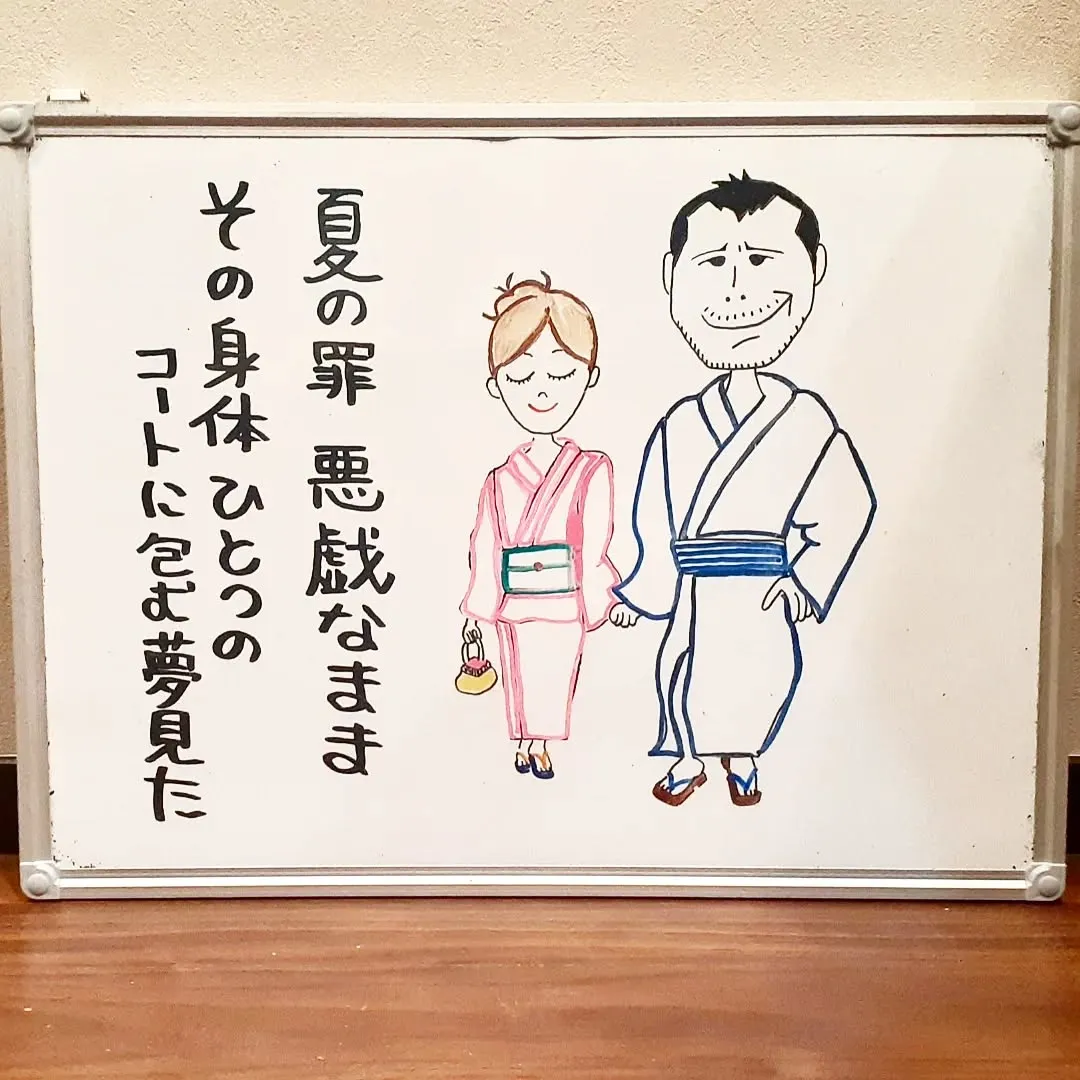 夏の罪 悪戯なまま
その身体ひとつの
コートに包む夢見た